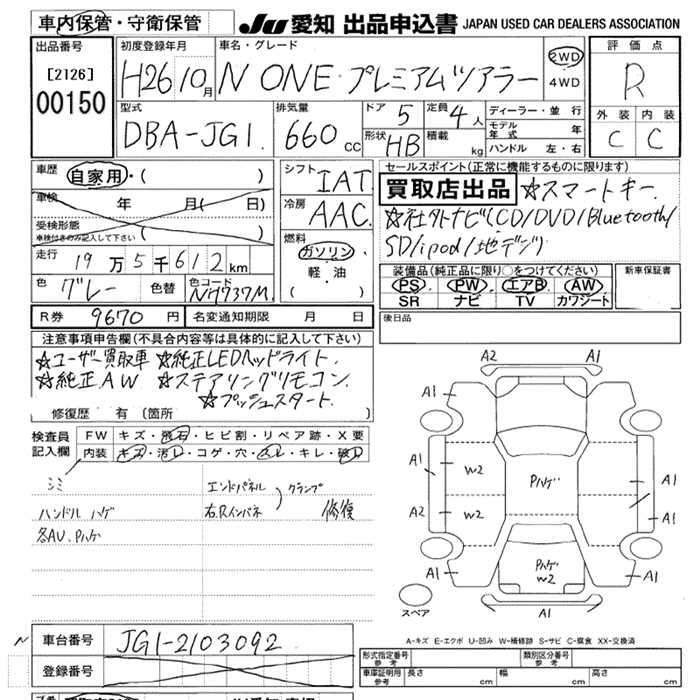 車内保管・守衛保管
JU 愛知 出品申込書 JAPAN USED CAR DEALERS ASSOCIATION
出品番号
[2126]
00150
初度登録年月
H26 10月
車名・グレード
N ONE プレミアムツアラー
2WD
4WD
評価点
R
型式
DBA-JG1
排気量
660 CC
ドア 5
定員 4人
形状 HB
積載 kg
ディーラー・並行
モデル年式 年
ハンドル 左・右
外装 内装
C C
車歴 自家用・( )
車検 年 月( 日)
受検形態
車検付きのみ記入して下さい
走行 19万5千612km
色 グレー 色替 色コード NH737M
シフト IAT
冷房 AAC
燃料
ガソリン
軽・油
セールスポイント(正常に機能するものに限ります)
買取店出品 ☆スマートキー
☆社外ナビ(CD/DVD/Bluetooth/
SD/ipod/地デジ)
装備品(純正品に限り○をつけてください)
PS PW エアB AW
SR ナビ TV カワシート
新車保証書
R券 9670円 名変通知期限 月 日
後日品
注意事項申告欄(不具合内容等は具体的に記入して下さい)
☆ユーザー買取車 ☆純正LEDヘッドライト
☆純正AW ☆ステアリングリモコン
☆プッシュスタート
修復歴 有(箇所 )
検査員記入欄
FW キズ・飛石・ヒビ割・リペア跡・X要
内装 キズ・汚レ・コゲ・穴・スレ・キレ・破レ
シミ
ハンドル ハゲ
各AU.Pハゲ
エンドパネル
右Rインパネ
クランプ
修復
A2 A1
A1 A1
A1 W2 Pハゲ A1
A2 W2 A1
Pハゲ
W2
A1 A1
A1
スペア
A-キズ E-エクボ U-凹み W-補修跡 S-サビ C-腐食 XX-交換済
N 車台番号 JG1-2103092
登録番号
形式指定番号 参考
類別区分番号 参考
車庫証明用 参考 長さ cm 幅 cm 高さ cm